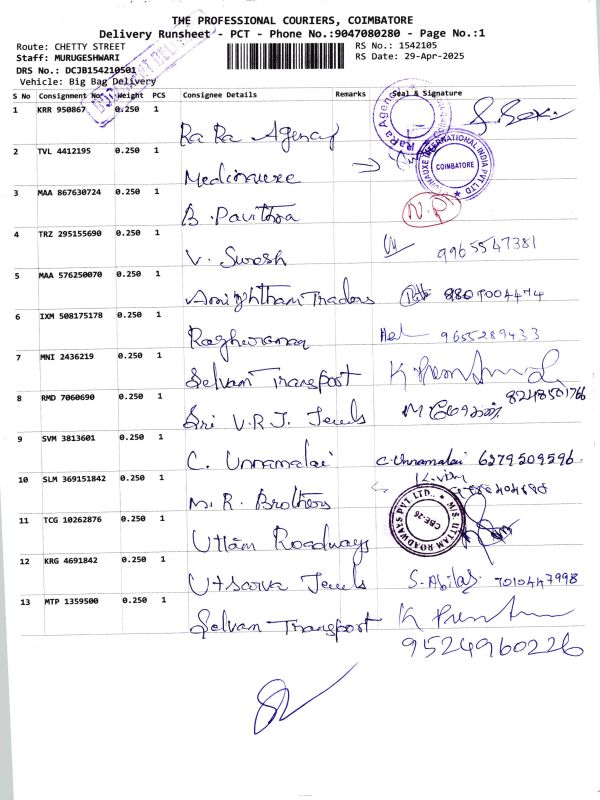 THE PROFESSIONAL COURIERS, COIMBATORE
Delivery Runsheet - PCT - Phone No.:9047080280 - Page No.:1
Route: CHETTY STREET
Staff: MURUGESHWARI
DRS No.: DCJB154210501
Vehicle: Big Bag Delivery
RS No.: 1542105
RS Date: 29-Apr-2025
S No Consignment No. Weight PCS Consignee Details Remarks Seal & Signature
1 KRR 950867 0.250 1 Ra Ra Agency
RaRa Agency
2 TVL 4412195 0.250 1
INTERNATIONAL INDIA PVT LTD
COIMBATORE
3 MAA 867630724 0.250 1 B. Pavithra N.P
4 TRZ 295155690 0.250 1 V. Suresh 9965547381
5 MAA 576250070 0.250 1 Traders
6 IXM 508175178 0.250 1 9655289433
7 MNI 2436219 0.250 1 Selvam Transport
8 RMD 7060690 0.250 1 Sri V.R.J. Jewels 8248501766
9 SVM 3813601 0.250 1 C. Unnamalai C. Unnamalai 6379509596
10 SLM 369151842 0.250 1 M. R. Brothers
11 TCG 10262876 0.250 1 Uttam Roadways
M/S. UTTAM ROADWAYS PVT. LTD.
CBE-26
12 KRG 4691842 0.250 1 Utsava Jewels 7010447998
13 MTP 1359500 0.250 1 Selvam Transport
9524960226